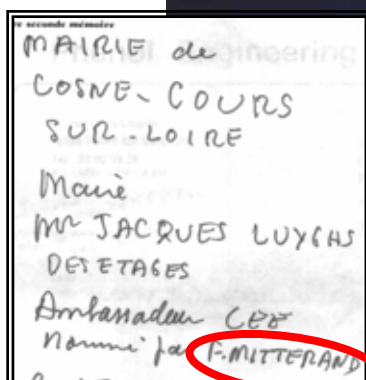 re seconde mémoire
MAIRIE de
COSNE-COURS
SUR-LOIRE
Maire
Mr JACQUES LUYGHS
DESETAGES
Ambassadeur CEE
nommé par F.MITTERAND